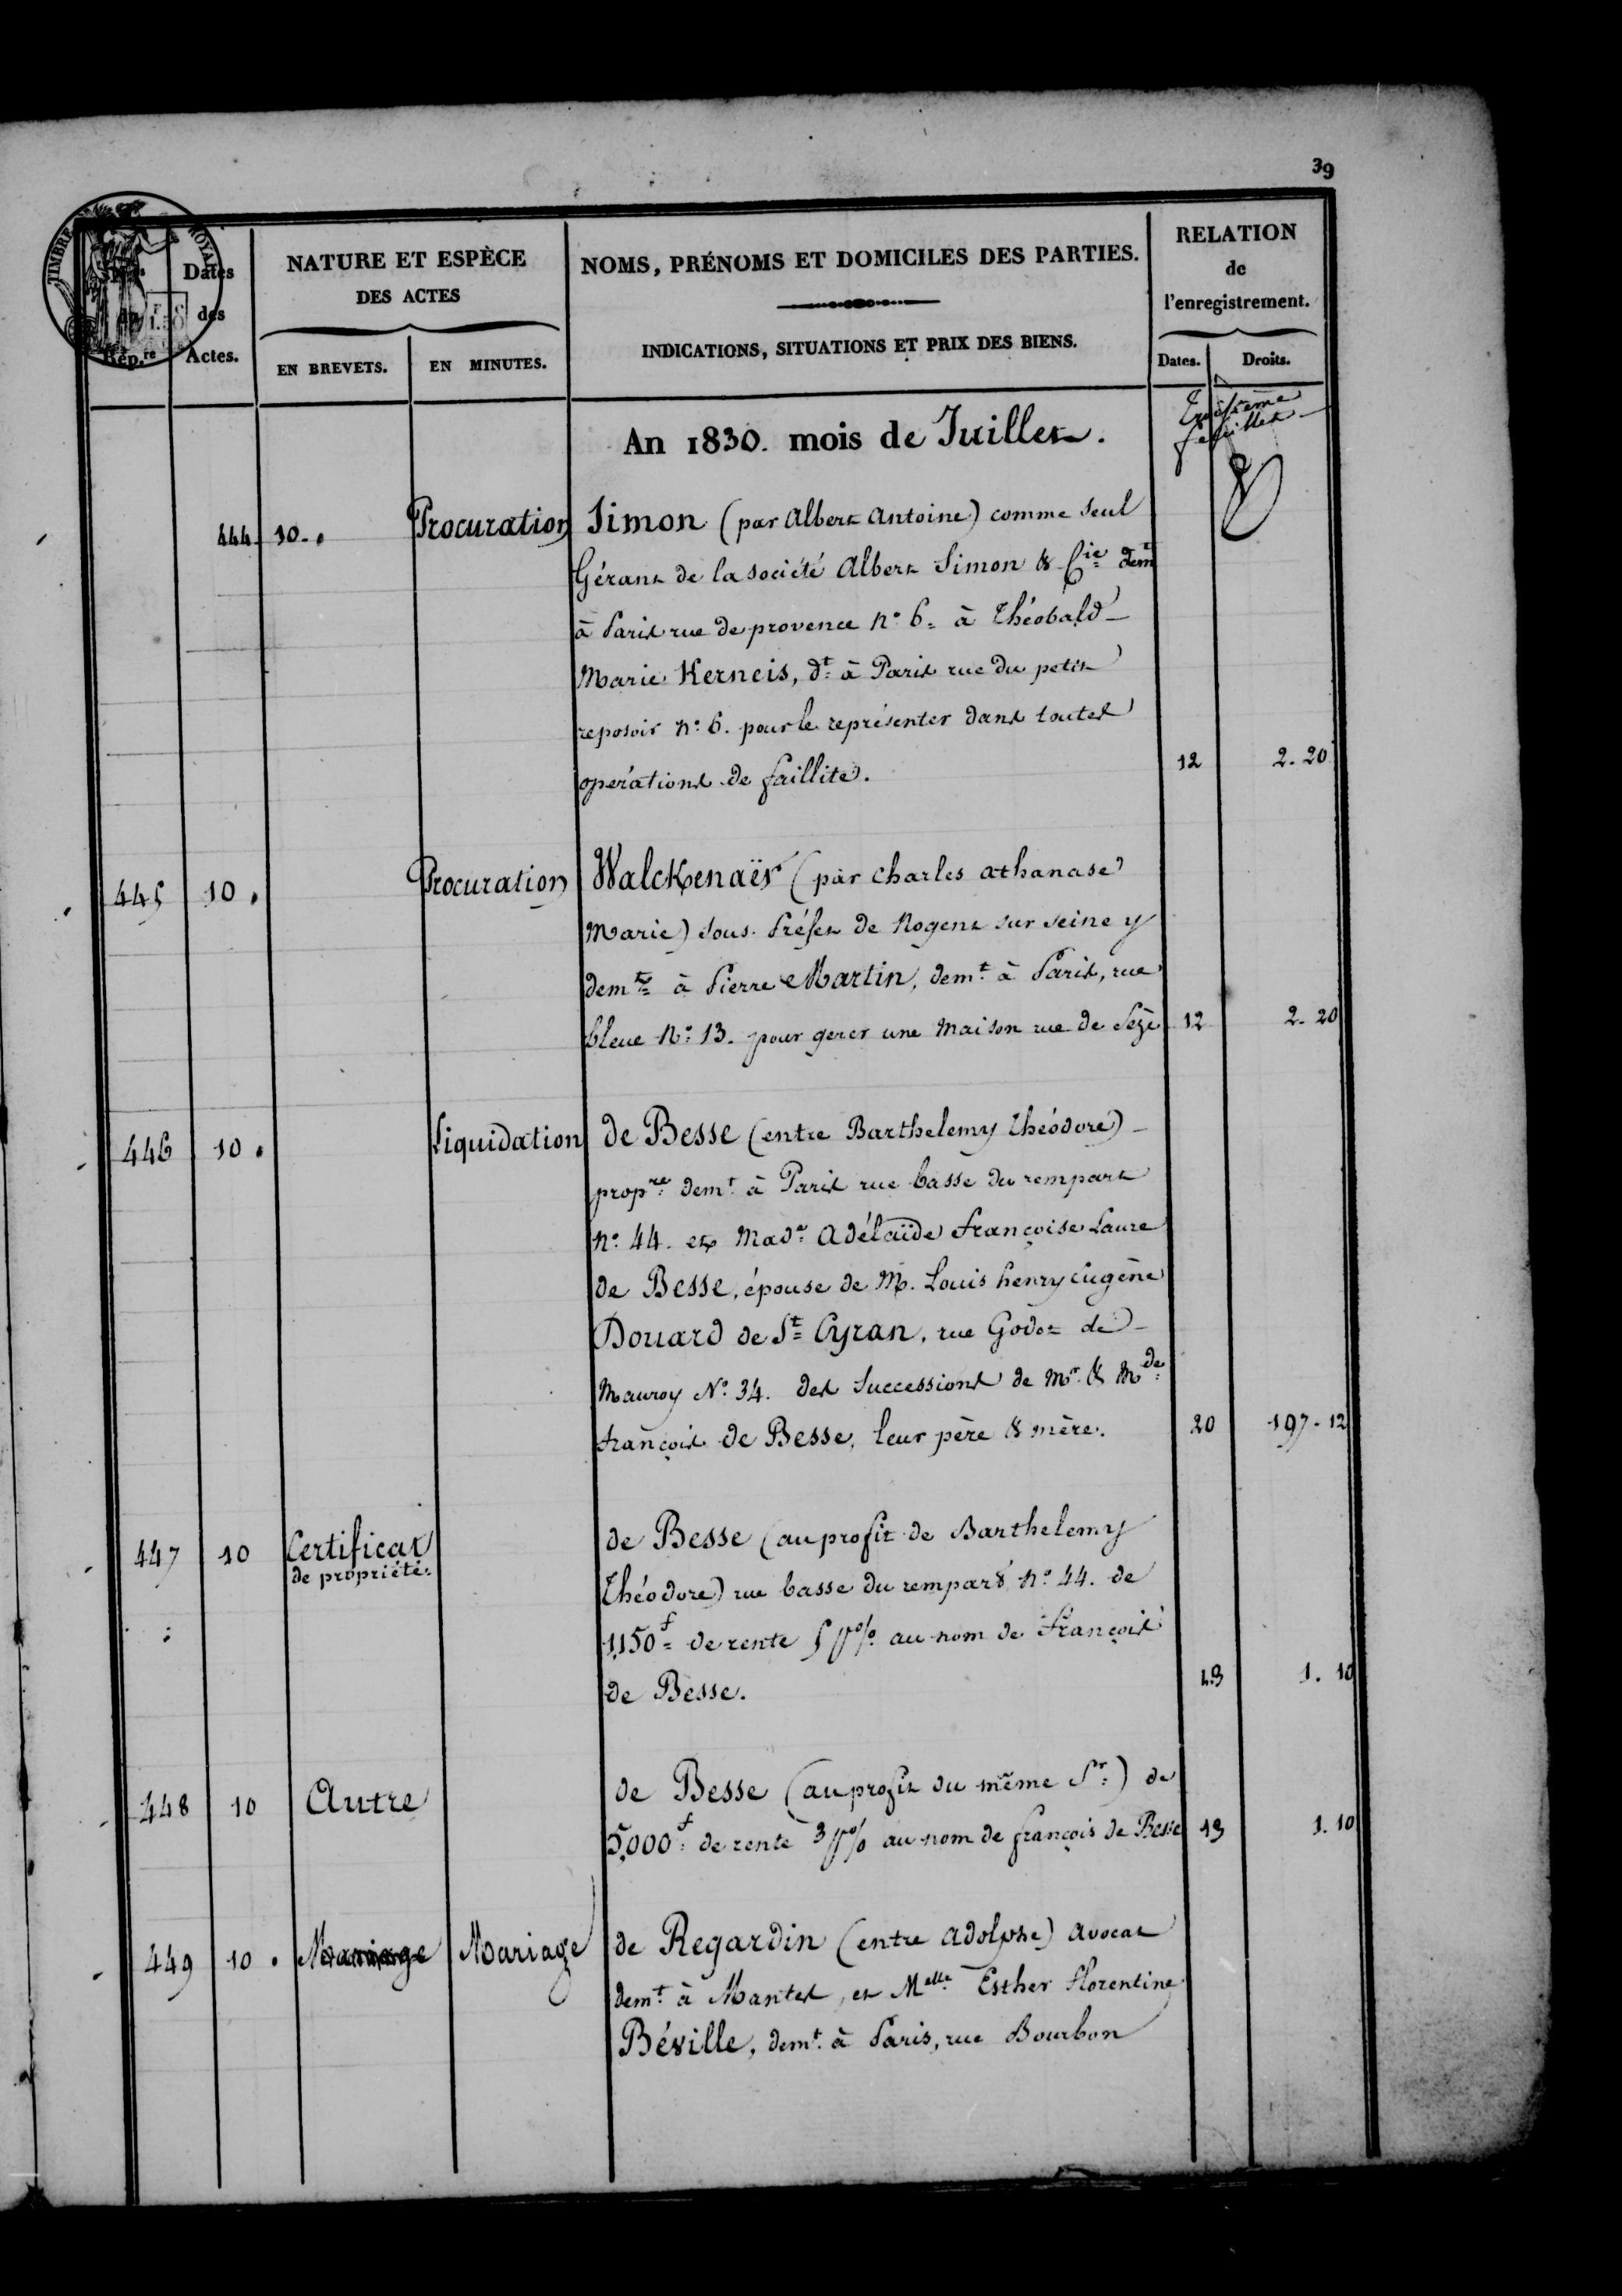 39
TIMBRE ROYAL
Nos du Rép.re
Dates des Actes.
NATURE ET ESPÈCE
DES ACTES
EN BREVETS.
EN MINUTES.
NOMS, PRÉNOMS ET DOMICILES DES PARTIES.
INDICATIONS, SITUATIONS ET PRIX DES BIENS.
RELATION
de
l'enregistrement.
Dates.
Droits.
An 1830. mois de Juillet.
feuillet
444 10. Procuration Simon (par Albert Antoine) comme seul
Gérant de la société Albert Simon & Cie demt
à Paris rue de provence n° 6 à Théobald
Marie Kerneis, dt à Paris rue du petit
reposoir n° 6. pour le représenter dans toutes
opérations de faillite. 12 2.20
445 10. Procuration Walckenaër (par Charles athanase
Marie) sous Préfet de Nogent sur seine y
demt à Pierre Martin, demt à Paris, rue
bleue N° 13. pour gerer une maison rue de Sèze 12 2.20
446 10. Liquidation de Besse (entre Barthelemy Théodore)
propre demt à Paris rue basse du rempart
n° 44. et Made Adélaïde Françoise Laure
de Besse, épouse de M. Louis henry Eugène
Douard de St Cyran, rue Godot de
Mauroy N° 34. des Successions de Mr & Mde
François de Besse, leur père & mère. 20 197.12
447 10 Certificat de Besse (au profit de Barthelemy
de propriété. Théodore) rue basse du rempart n° 44. de
1,150f de rente 5 p% au nom de François
de Besse. 13 1.10
448 10 Autre de Besse (au profit du même Sr) de
5,000f de rente 3 p% au nom de françois de Besse 13 1.10
449 10. Mariage Mariage de Regardin (entre adolphe) avocat
demt à Mantes, et Melle Esther Florentine
Béville, demt à Paris, rue Bourbon